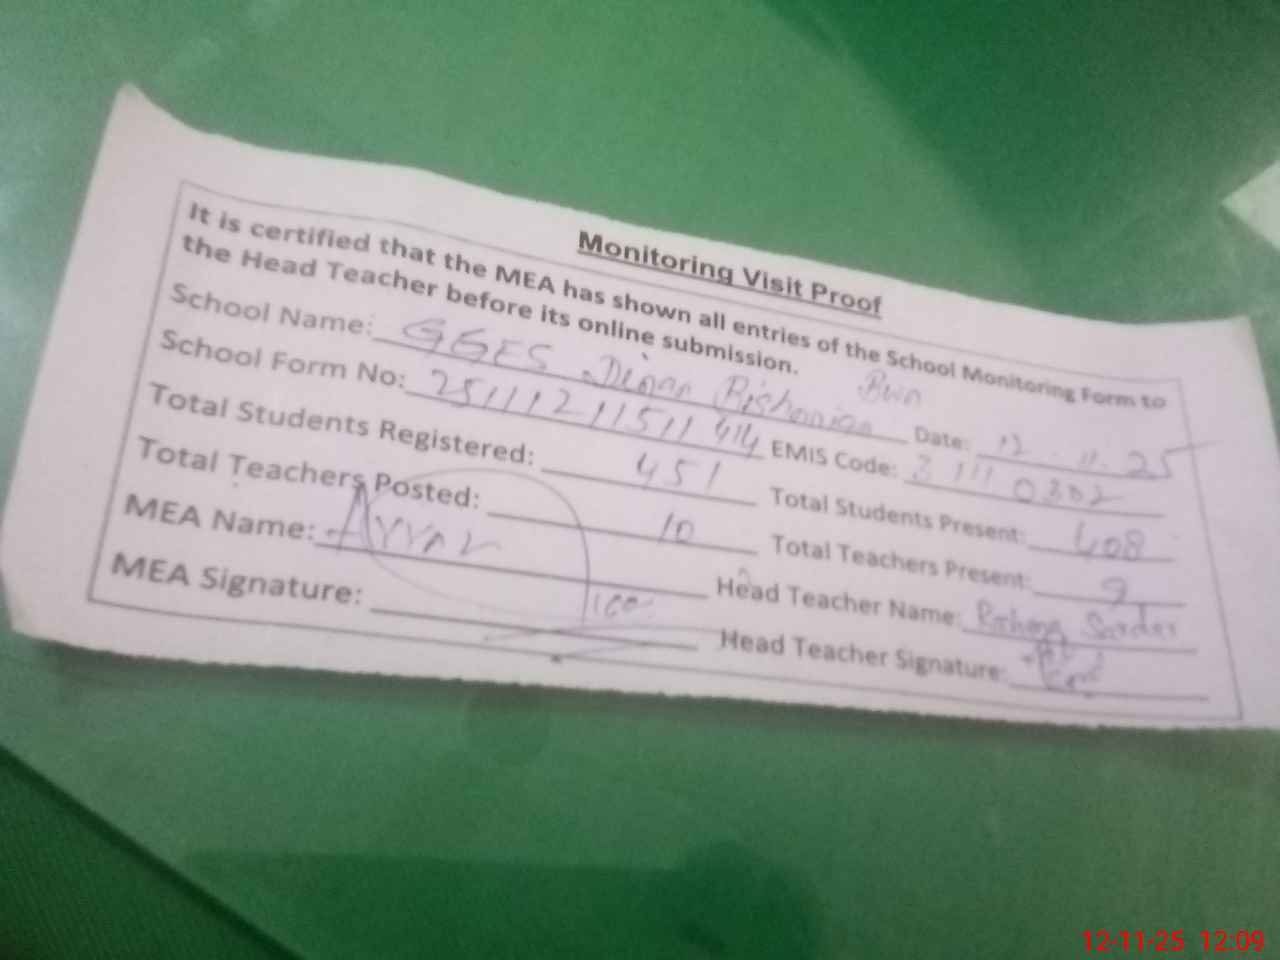 Monitoring Visit Proof
It is certified that the MEA has shown all entries of the School Monitoring Form to
the Head Teacher before its online submission.
School Name: GGES Bwn Date: 12.11.25
School Form No: 25111211511414 EMIS Code: 31110302
Total Students Registered: 451 Total Students Present: 408
Total Teachers Posted: 10 Total Teachers Present: 9
MEA Name: Head Teacher Name: Sardar
MEA Signature: Head Teacher Signature:
12-11-25 12:09